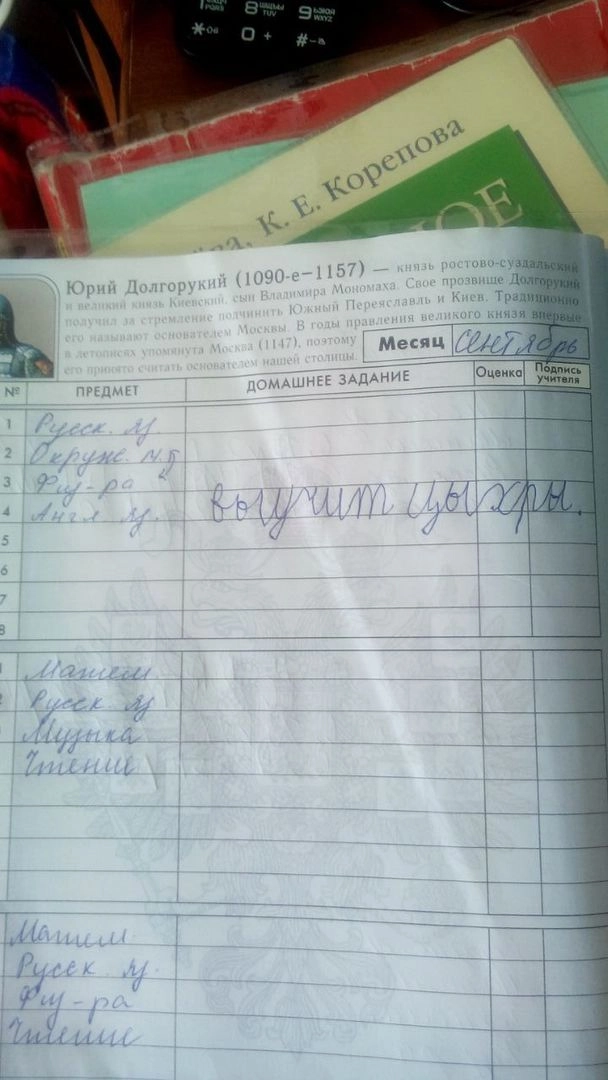 8 шщъы 9 ьэюя
PQRS TUV WXYZ
* 0 + #
К. Е. Корепова
НОЕ
Юрий Долгорукий (1090-е–1157) — князь ростово-суздальский
и великий князь Киевский, сын Владимира Мономаха. Свое прозвище Долгорукий
получил за стремление подчинить Южный Переяславль и Киев. Традиционно
его называют основателем Москвы. В годы правления великого князя впервые
в летописях упомянута Москва (1147), поэтому
его принято считать основателем нашей столицы.
Месяц Сентябрь
№ ПРЕДМЕТ ДОМАШНЕЕ ЗАДАНИЕ Оценка Подпись учителя
1 Русск. яз.
2 Окруж.
3 Физ-ра
4 Англ. яз. выучит цыхры.
5
6
7
8
Матем
Русск. яз
Музыка
Чтение
Матем.
Русск. яз.
Физ-ра
Чтение